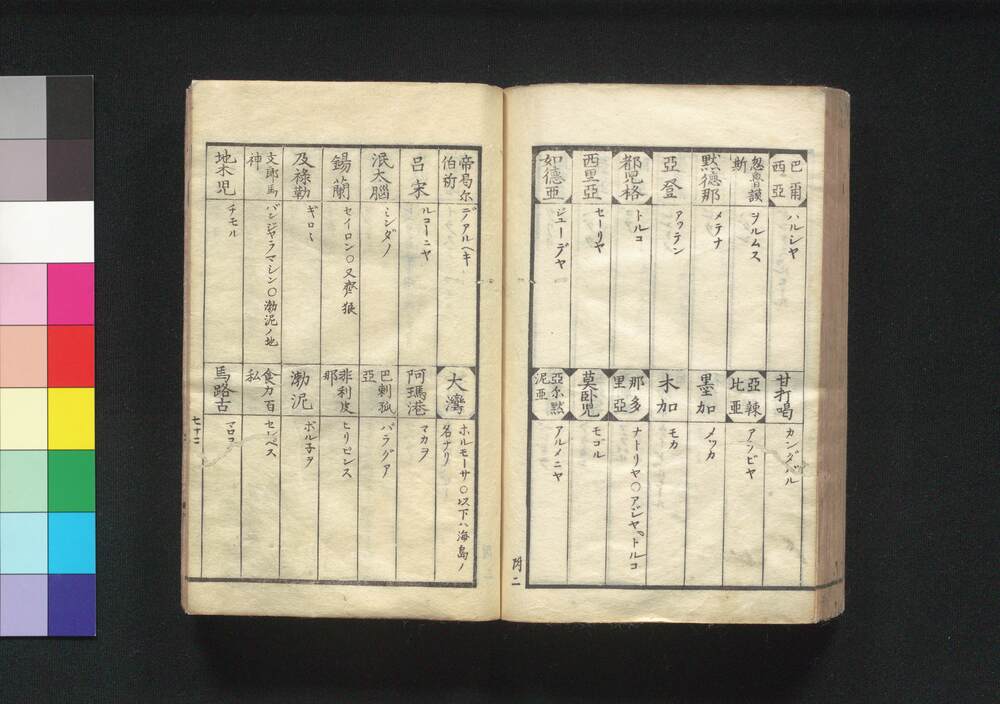 巴爾西亞 ハルシヤ
忽魯謨斯 ヲルムス
默德那 メテナ
亞登 アツテン
都児格 トルコ
西里亞 セーリヤ
如德亞 ジユーデヤ
甘打喝 カンダハル
亞辣比亜 アラビヤ
墨加 メツカ
木加 モカ
那多里亞 ナトリヤ〇アジヤトルコ
莫臥児 モゴル
亞尓默泥亜 アルメニヤ
附二
帝尓伯 デアルヘキ
呂宋 ルコーニヤ
泯太腦 ミンダノ
錫蘭 セイロン〇又齊狼
及祿勒 ギロヽ
文郎馬神 バンジヤラマシン〇渤泥ノ地
地木児 チモル
大灣 ホルモーサ〇以下ハ海島ノ
名ナリ
阿瑪港 マカヲ
巴剌孤亞 パラグア
非利皮那 ヒリピンス
渤泥 ボル子ヲ
食力百私 セレベス
馬路古 マロコ
七十二